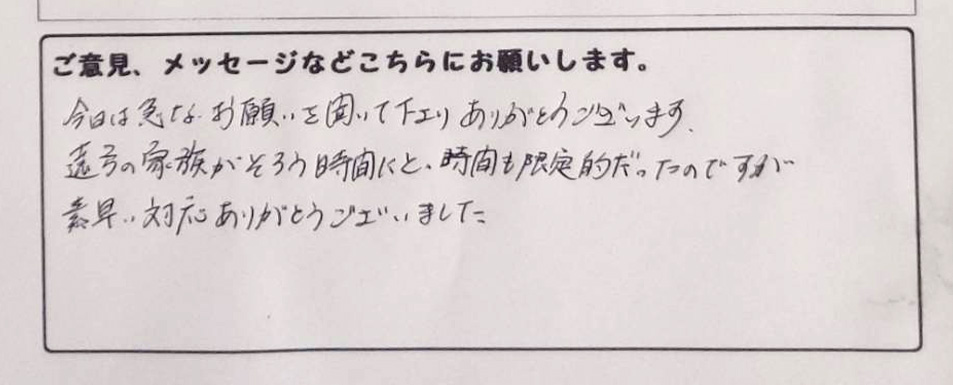 ご意見、メッセージなどこちらにお願いします。
今日は急なお願いを聞いて下さりありがとうございます。
遠方の家族がそろう時間にと、時間も限定的だったのですが
素早い対応ありがとうございました